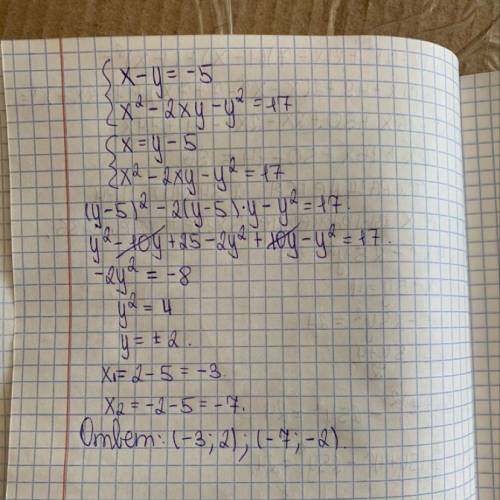 {x - y = -5
{x² - 2xy - y² = 17
{x = y - 5
{x² - 2xy - y² = 17
(y-5)² - 2(y-5)·y - y² = 17.
y² - 10y + 25 - 2y² + 10y - y² = 17.
-2y² = -8
y² = 4
y = ± 2.
x₁ = 2 - 5 = -3.
x₂ = -2 - 5 = -7.
Ответ: (-3; 2); (-7; -2).